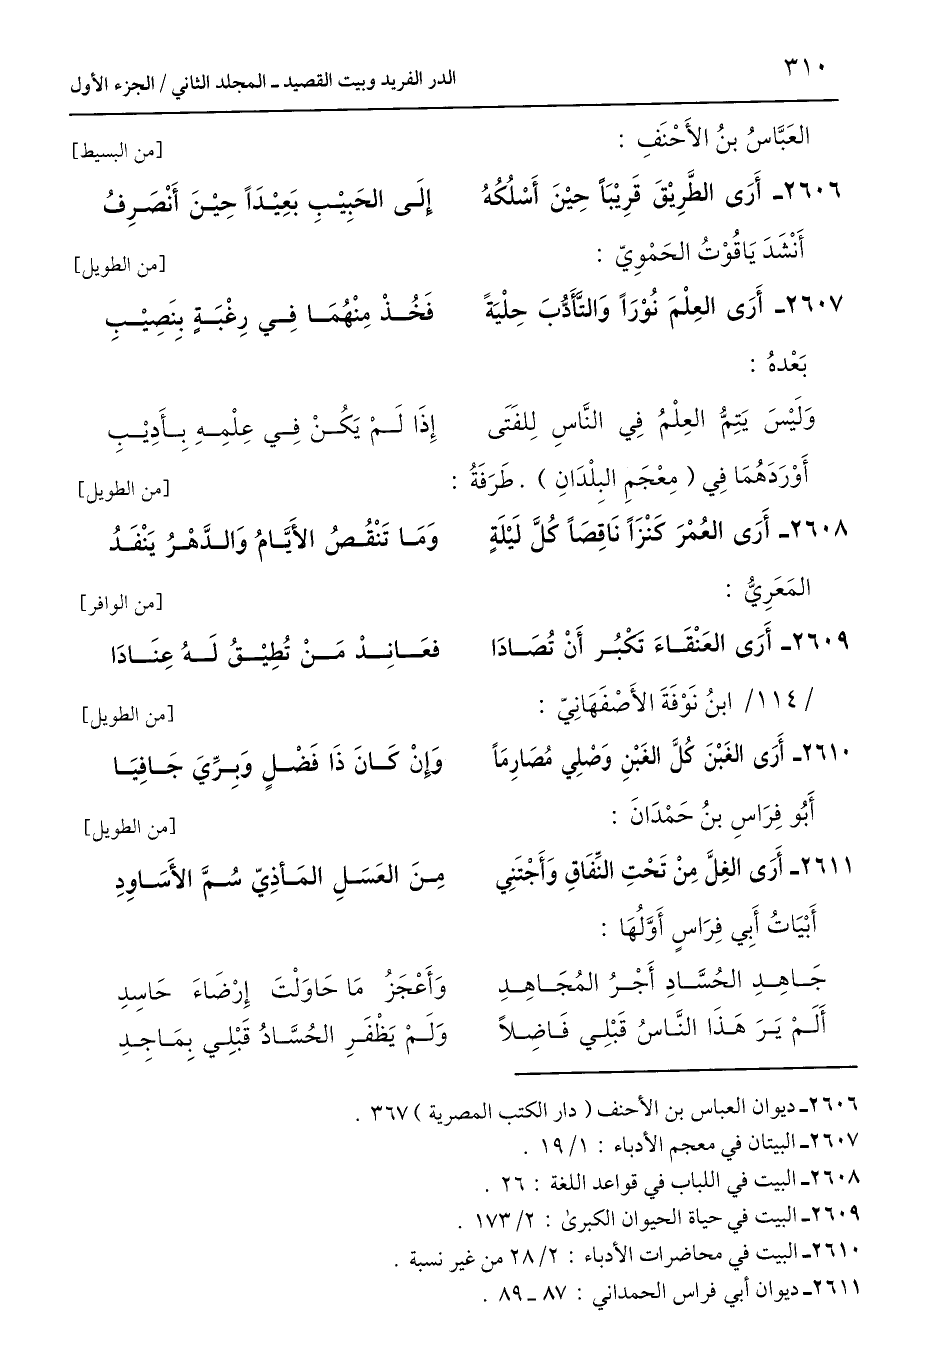 ٣١٠
الدر الفريد وبيت القصيد ـ المجلد الثاني / الجزء الأول
العَبَّاسُ بنُ الأَحْنَفِ : [من البسيط]
٢٦٠٦ـ أَرَى الطَّرِيْقَ قَرِيْبَاً حِيْنَ أَسْلُكُهُ إِلَى الحَبِيْبِ بَعِيْدَاً حِيْنَ أَنْصَرِفُ
أَنْشَدَ يَاقُوْتُ الحَمْوِيّ : [من الطويل]
٢٦٠٧ـ أَرَى العِلْمَ نُوْرَاً وَالتَّأَدُّبَ حِلْيَةً فَخُذْ مِنْهُمَا فِي رِغْبَةٍ بِنَصِيْبِ
بَعْدهُ :
وَلَيْسَ يَتِمُّ العِلْمُ فِي النَّاسِ لِلفَتَى إِذَا لَمْ يَكُنْ فِي عِلْمِهِ بِأَدِيْبِ
أَوْرَدَهُمَا فِي ( مِعْجَمِ البِلْدَانِ ) . طَرَفَةُ : [من الطويل]
٢٦٠٨ـ أَرَى العُمْرَ كَنْزَاً نَاقِصَاً كُلَّ لَيْلَةٍ وَمَا تَنْقُصُ الأَيَّامُ وَالدَّهْرُ يَنْفَدُ
المَعَرِيُّ : [من الوافر]
٢٦٠٩ـ أَرَى العَنْقَاءَ تَكْبُر أَنْ تُصَادَا فعَانِدْ مَنْ تُطِيْقُ لَهُ عِنَادَا
/١١٤/ ابنُ نَوْفَةَ الأَصْفَهَانِيّ : [من الطويل]
٢٦١٠ـ أَرَى الغَبْنَ كُلَّ الغَبْنِ وَصْلِي مُصَارِمَاً وَإِنْ كَانَ ذَا فَضْلٍ وَبِرِّيَ جَافِيَا
أَبُو فِرَاسِ بنُ حَمْدَانَ : [من الطويل]
٢٦١١ـ أَرَى الغِلَّ مِنْ تَحْتِ النِّفَاقِ وَأَجْتَنِي مِنَ العَسَلِ المَأذِيّ سُمَّ الأَسَاودِ
أَبْيَاتُ أَبِي فِرَاسٍ أَوَّلُهَا :
جَاهِدِ الحُسَّادِ أَجْرُ المُجَاهِدِ وَأَعْجَزُ مَا حَاوَلْتَ إِرْضَاءَ حَاسِدِ
أَلَمْ يَرَ هَذَا النَّاسُ قَبْلِي فَاضِلاً وَلَمْ يَظْفَرِ الحُسَّادُ قَبْلِي بِمَاجِدِ
٢٦٠٦ـ ديوان العباس بن الأحنف ( دار الكتب المصرية ) ٣٦٧ .
٢٦٠٧ـ البيتان في معجم الأدباء : ١/ ١٩ .
٢٦٠٨ـ البيت في اللباب في قواعد اللغة : ٢٦ .
٢٦٠٩ـ البيت في حياة الحيوان الكبرىٰ : ٢/ ١٧٣ .
٢٦١٠ـ البيت في محاضرات الأدباء : ٢/ ٢٨ من غير نسبة .
٢٦١١ـ ديوان أبي فراس الحمداني : ٨٧ ـ ٨٩ .